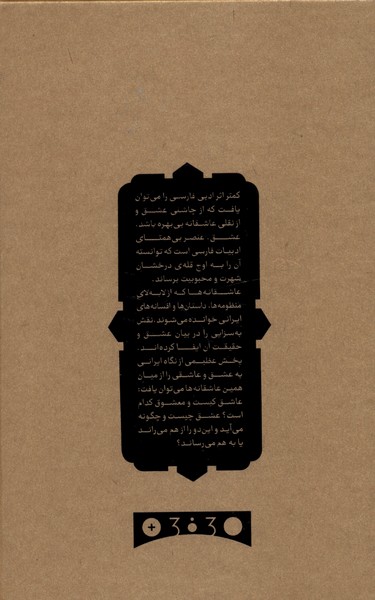 کمتر اثر ادبی فارسی را می‌توان
یافت که از چاشنی عشق و
از نقلی عاشقانه بی‌بهره باشد.
عشق، عنصر بی‌همتای
ادبیات فارسی است که توانسته
آن را به اوج قله‌ی درخشان
شهرت و محبوبیت برساند.
عاشقانه‌ها که از لابه‌لای
منظومه‌ها، داستان‌ها و افسانه‌های
ایرانی خوانده می‌شوند، نقش
به‌سزایی را در بیان عشق و
حقیقت آن ایفا کرده‌اند.
بخش عظیمی از نگاه ایرانی
به عشق و عاشقی را از میان
همین عاشقانه‌ها می‌توان یافت؛
عاشق کیست و معشوق کدام
است؟ عشق چیست و چگونه
می‌آید و این‌دو را از هم می‌راند
یا به هم می‌رساند؟